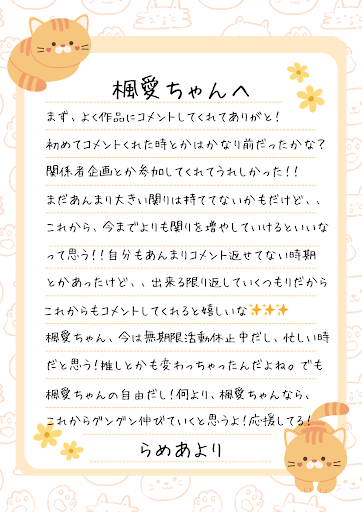 楓愛ちゃんへ
まず、よく作品にコメントしてくれてありがと!
初めてコメントくれた時とかはかなり前だったかな?
関係者企画とか参加してくれてうれしかった!!
まだあんまり大きい関りは持ててないかもだけど、、
これから、今までよりも関りを増やしていけるといいな
って思う!!自分もあんまりコメント返せてない時期
とかあったけど、、出来る限り返していくつもりだから
これからもコメントしてくれると嬉しいな✨✨✨
楓愛ちゃん、今は無期限活動休止中だし、忙しい時
だと思う!推しとかも変わっちゃったんだよね。でも
楓愛ちゃんの自由だし!何より、楓愛ちゃんなら、
これからグングン伸びていくと思うよ!応援してる!
らめあより